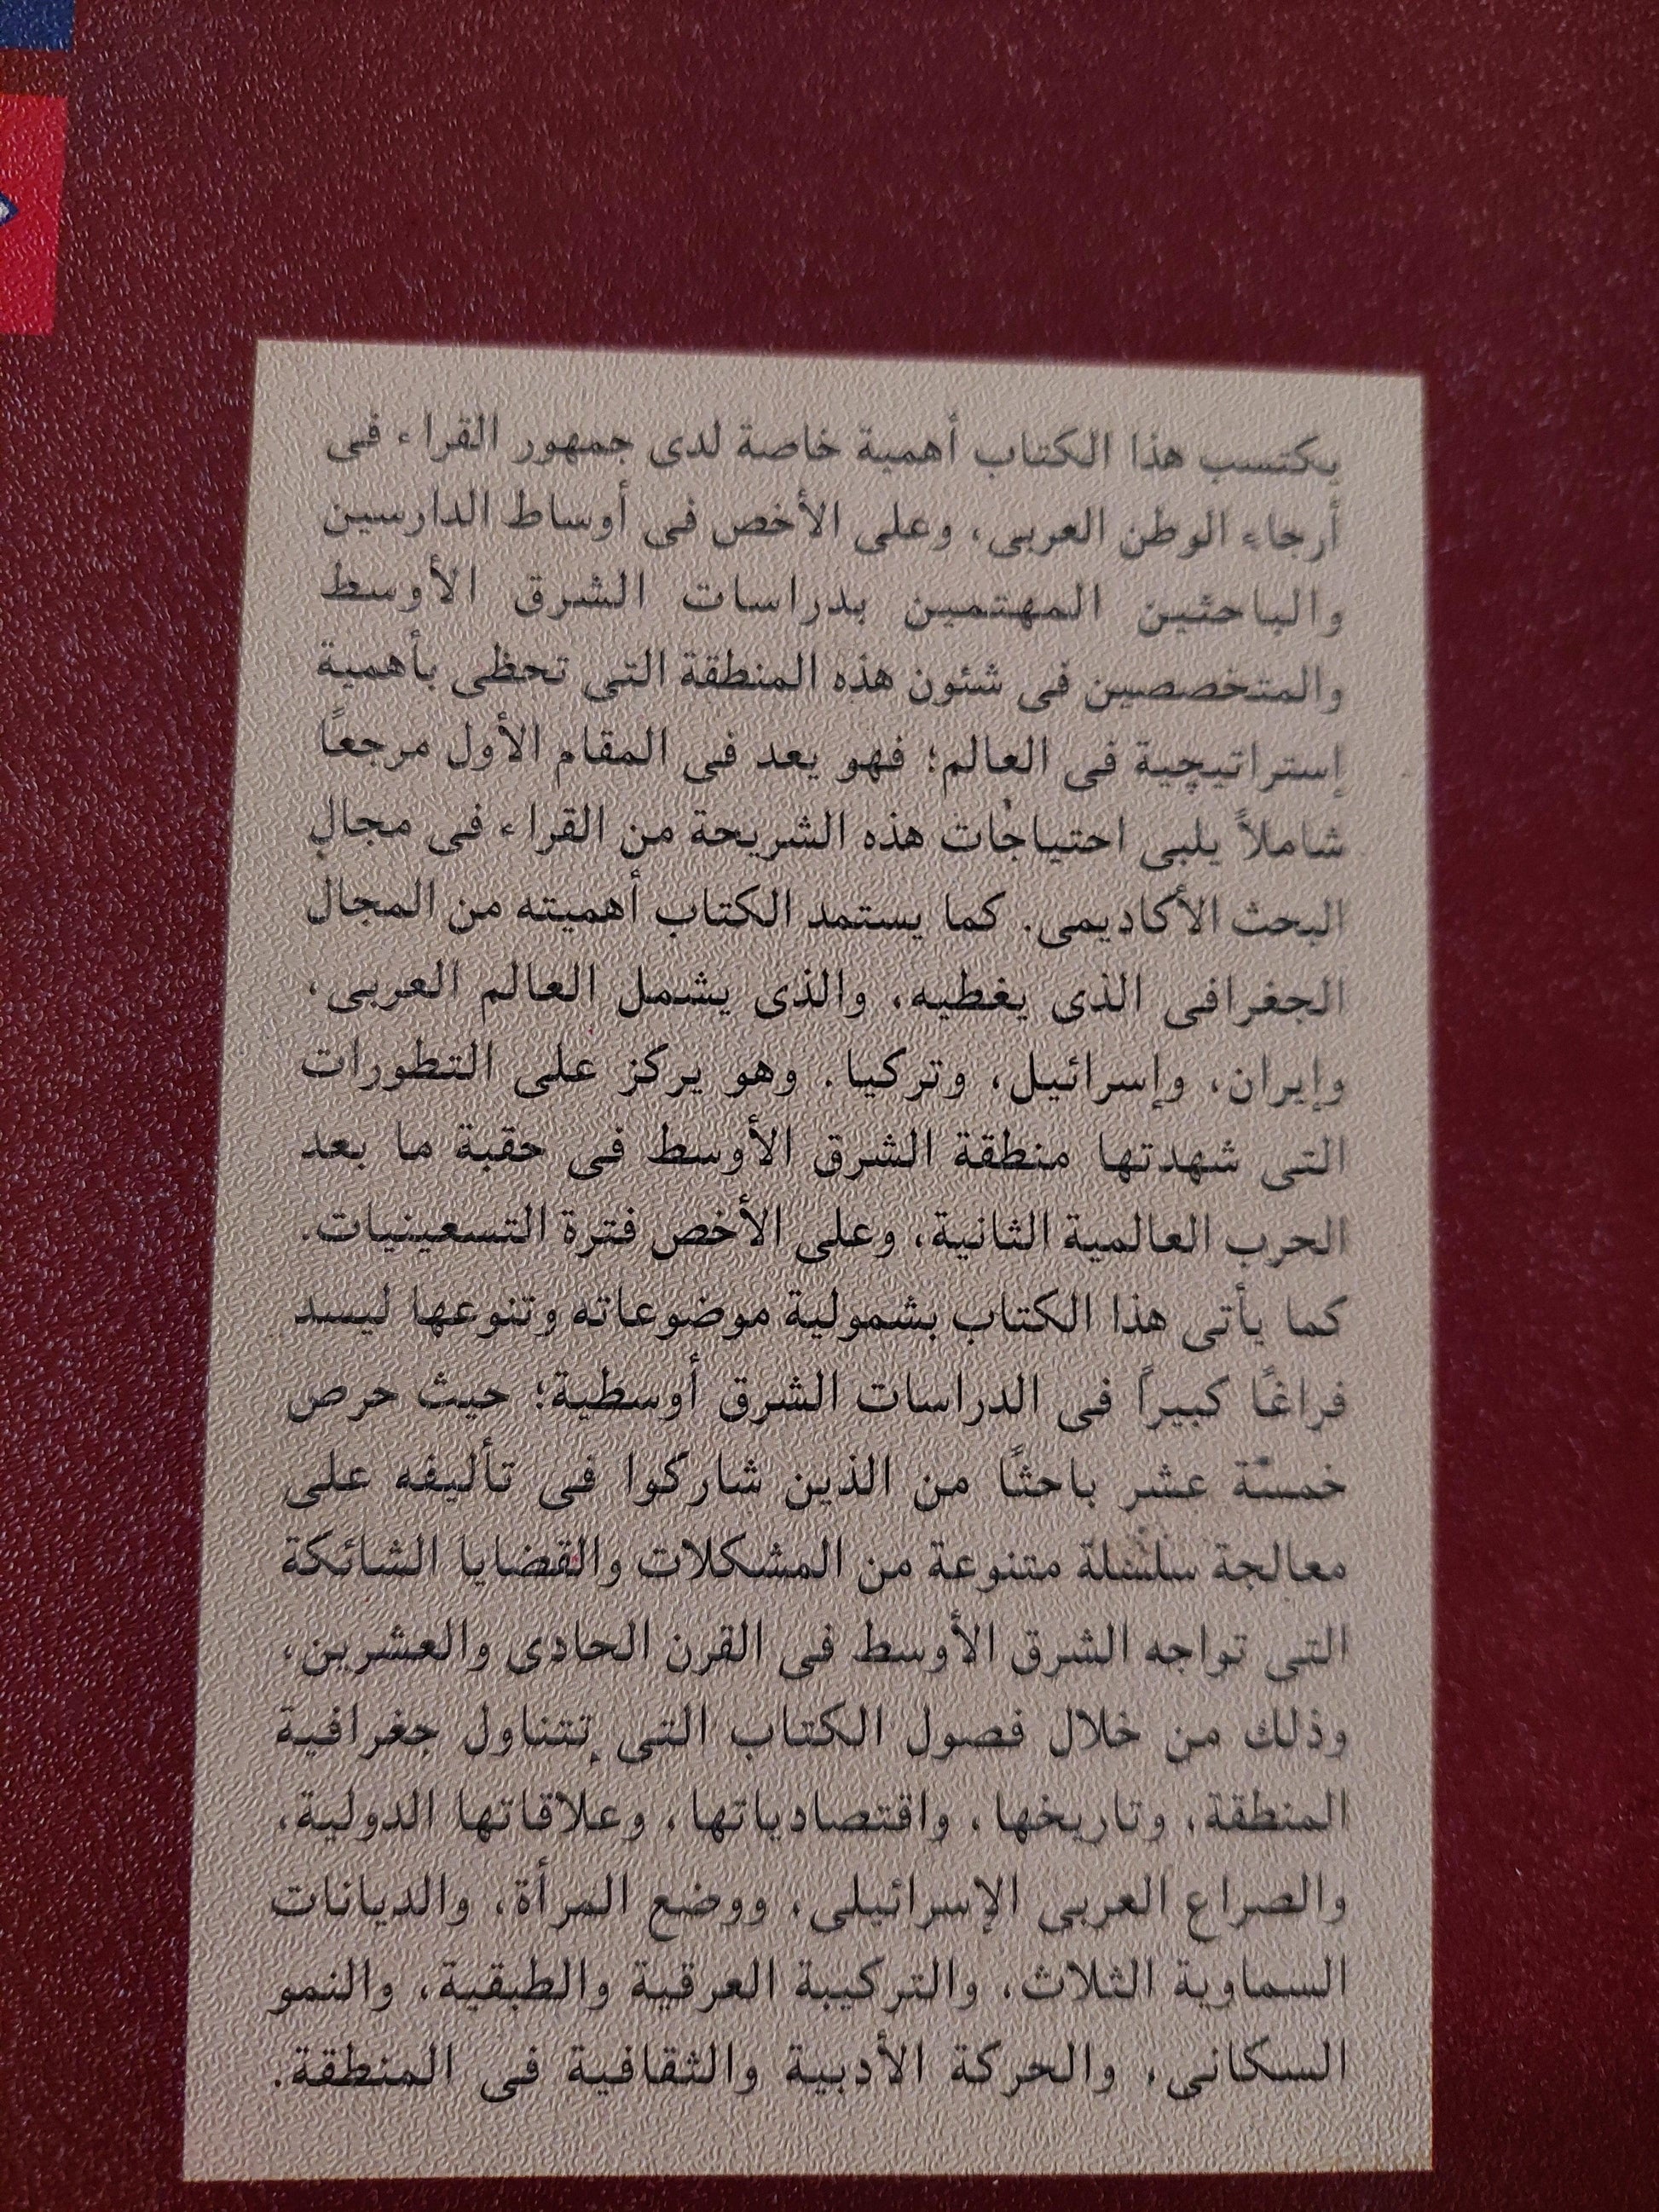 يكتسب هذا الكتاب أهمية خاصة لدى جمهور القراء فى
أرجاء الوطن العربى، وعلى الأخص فى أوساط الدارسين
والباحثين المهتمين بدراسات الشرق الأوسط
والمتخصصين فى شئون هذه المنطقة التى تحظى بأهمية
إستراتيچية فى العالم؛ فهو يعد فى المقام الأول مرجعًا
شاملاً يلبى احتياجات هذه الشريحة من القراء فى مجال
البحث الأكاديمى. كما يستمد الكتاب أهميته من المجال
الجغرافى الذى يغطيه، والذى يشمل العالم العربى،
وإيران، وإسرائيل، وتركيا. وهو يركز على التطورات
التى شهدتها منطقة الشرق الأوسط فى حقبة ما بعد
الحرب العالمية الثانية، وعلى الأخص فترة التسعينيات.
كما يأتى هذا الكتاب بشمولية موضوعاته وتنوعها ليسد
فراغًا كبيراً فى الدراسات الشرق أوسطية؛ حيث حرص
خمسة عشر باحثًا من الذين شاركوا فى تأليفه على
معالجة سلسلة متنوعة من المشكلات والقضايا الشائكة
التى تواجه الشرق الأوسط فى القرن الحادى والعشرين،
وذلك من خلال فصول الكتاب التى تتناول جغرافية
المنطقة، وتاريخها، واقتصادياتها، وعلاقاتها الدولية،
والصراع العربى الإسرائيلى، ووضع المرأة، والديانات
السماوية الثلاث، والتركيبة العرقية والطبقية، والنمو
السكانى، والحركة الأدبية والثقافية فى المنطقة.